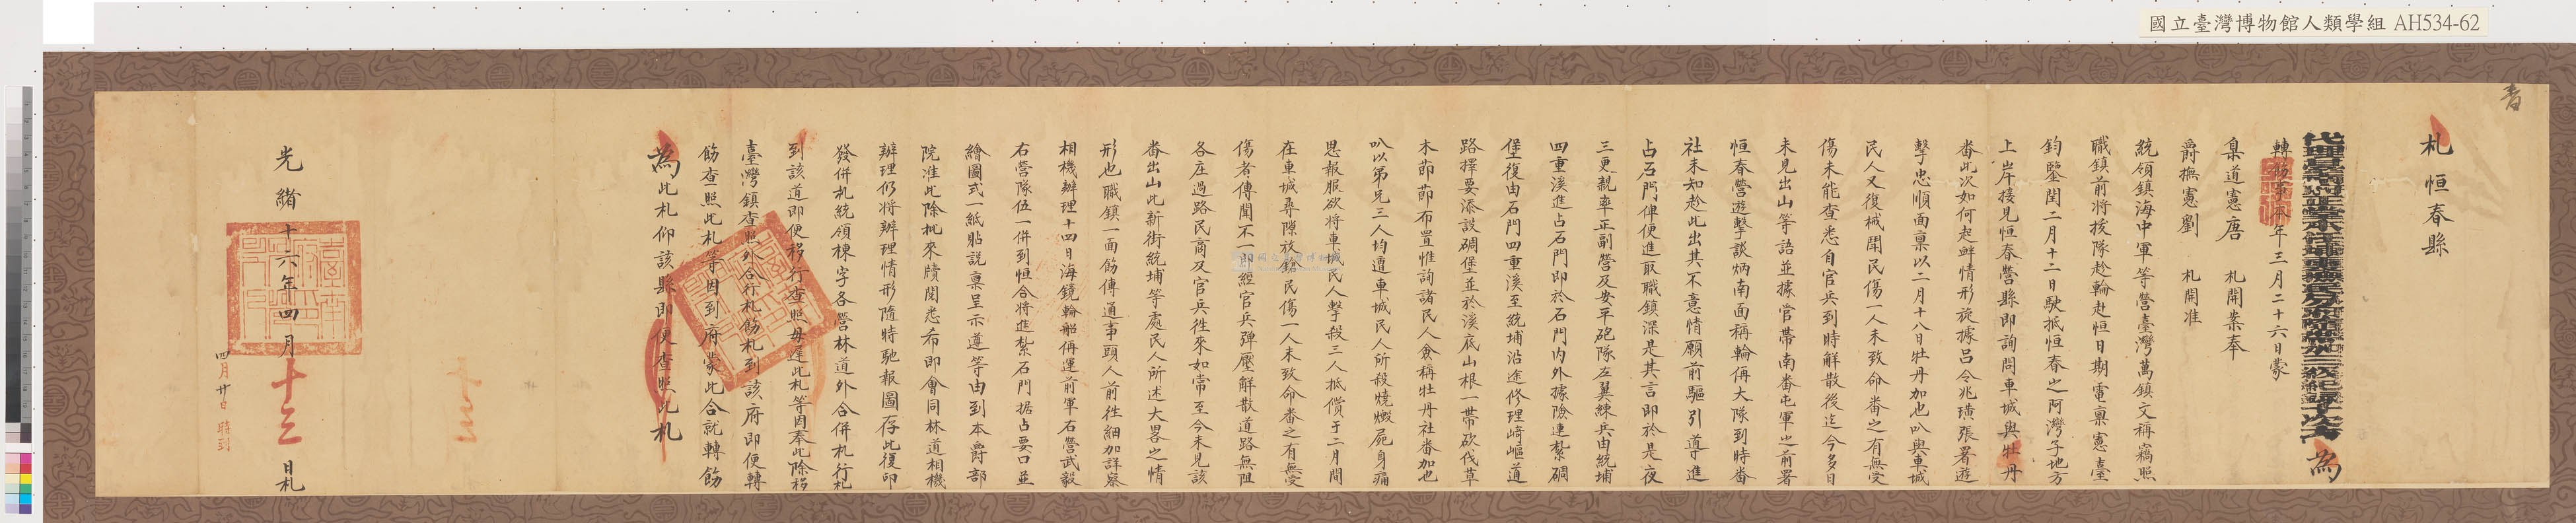 國立臺灣博物館人類學組 AH534-62
札恒春縣
為
轉飭事本年三月二十六日蒙
臬道憲唐 札開案奉
爵撫憲劉 札開准
統領鎮海中軍等營臺灣萬鎮文稱竊照
職鎮前將援隊趁輪赴恒日期電稟憲臺
鈞鑒閏二月十二日駛抵恒春之阿灣子地方
上岸接見恒春營縣即詢問車城與牡丹
番此次如何起衅情形旋據呂令兆璜張署遊
擊忠順面稟以二月十八日牡丹加也叭與車城
民人又復械鬪民傷一人未致命番之有無受
傷未能查悉自官兵到時解散後迄今多日
未見出山等語並據官帶南番屯軍之前署
恒春營遊擊談炳南面稱輪偁大隊到時番
社未知趁此出其不意情願前驅引導進
占石門俾便進取職鎮深是其言即於是夜
三更親率正副營及安平砲隊左翼練兵由統埔
四重溪進占石門即於石門內外據險連紮碉
堡復由石門四重溪至統埔沿途修理崎嶇道
路擇要添設碉堡並於溪底山根一帶砍伐草
木節節布置惟詢諸民人僉稱牡丹社番加也
叭以弟兄三人均遭車城民人所殺燒燬屍身痛
思報服欲將車城民人擊殺三人抵償于二月間
在車城尋隙放鎗民傷一人未致命番之有無受
傷者傳聞不一即經官兵彈壓解散道路無阻
各庄過路民商及官兵徃來如常至今未見該
番出山此新街統埔等處民人所述大畧之情
形也職鎮一面飭傳通事頭人前徃細加詳察
相機辦理十四日海鏡輪船偁運前軍右營武毅
右營隊伍一併到恒合將進紮石門据占要口並
繪圖式一紙貼説稟呈示遵等由到本爵部
院准此除批來牘閱悉希即會同林道相機
辦理仍將辦理情形隨時馳報圖存此復印
發併札統領棟字各營林道外合併札行札
到該道即便移行查照毋遲此札等因奉此除移
臺灣鎮查照外合行札飭札到該府即便轉
飭查照此札等因到府蒙此合就轉飭
為此札仰該縣即便查照此札
光緒十六年四月十三日札
四月廿日 時到